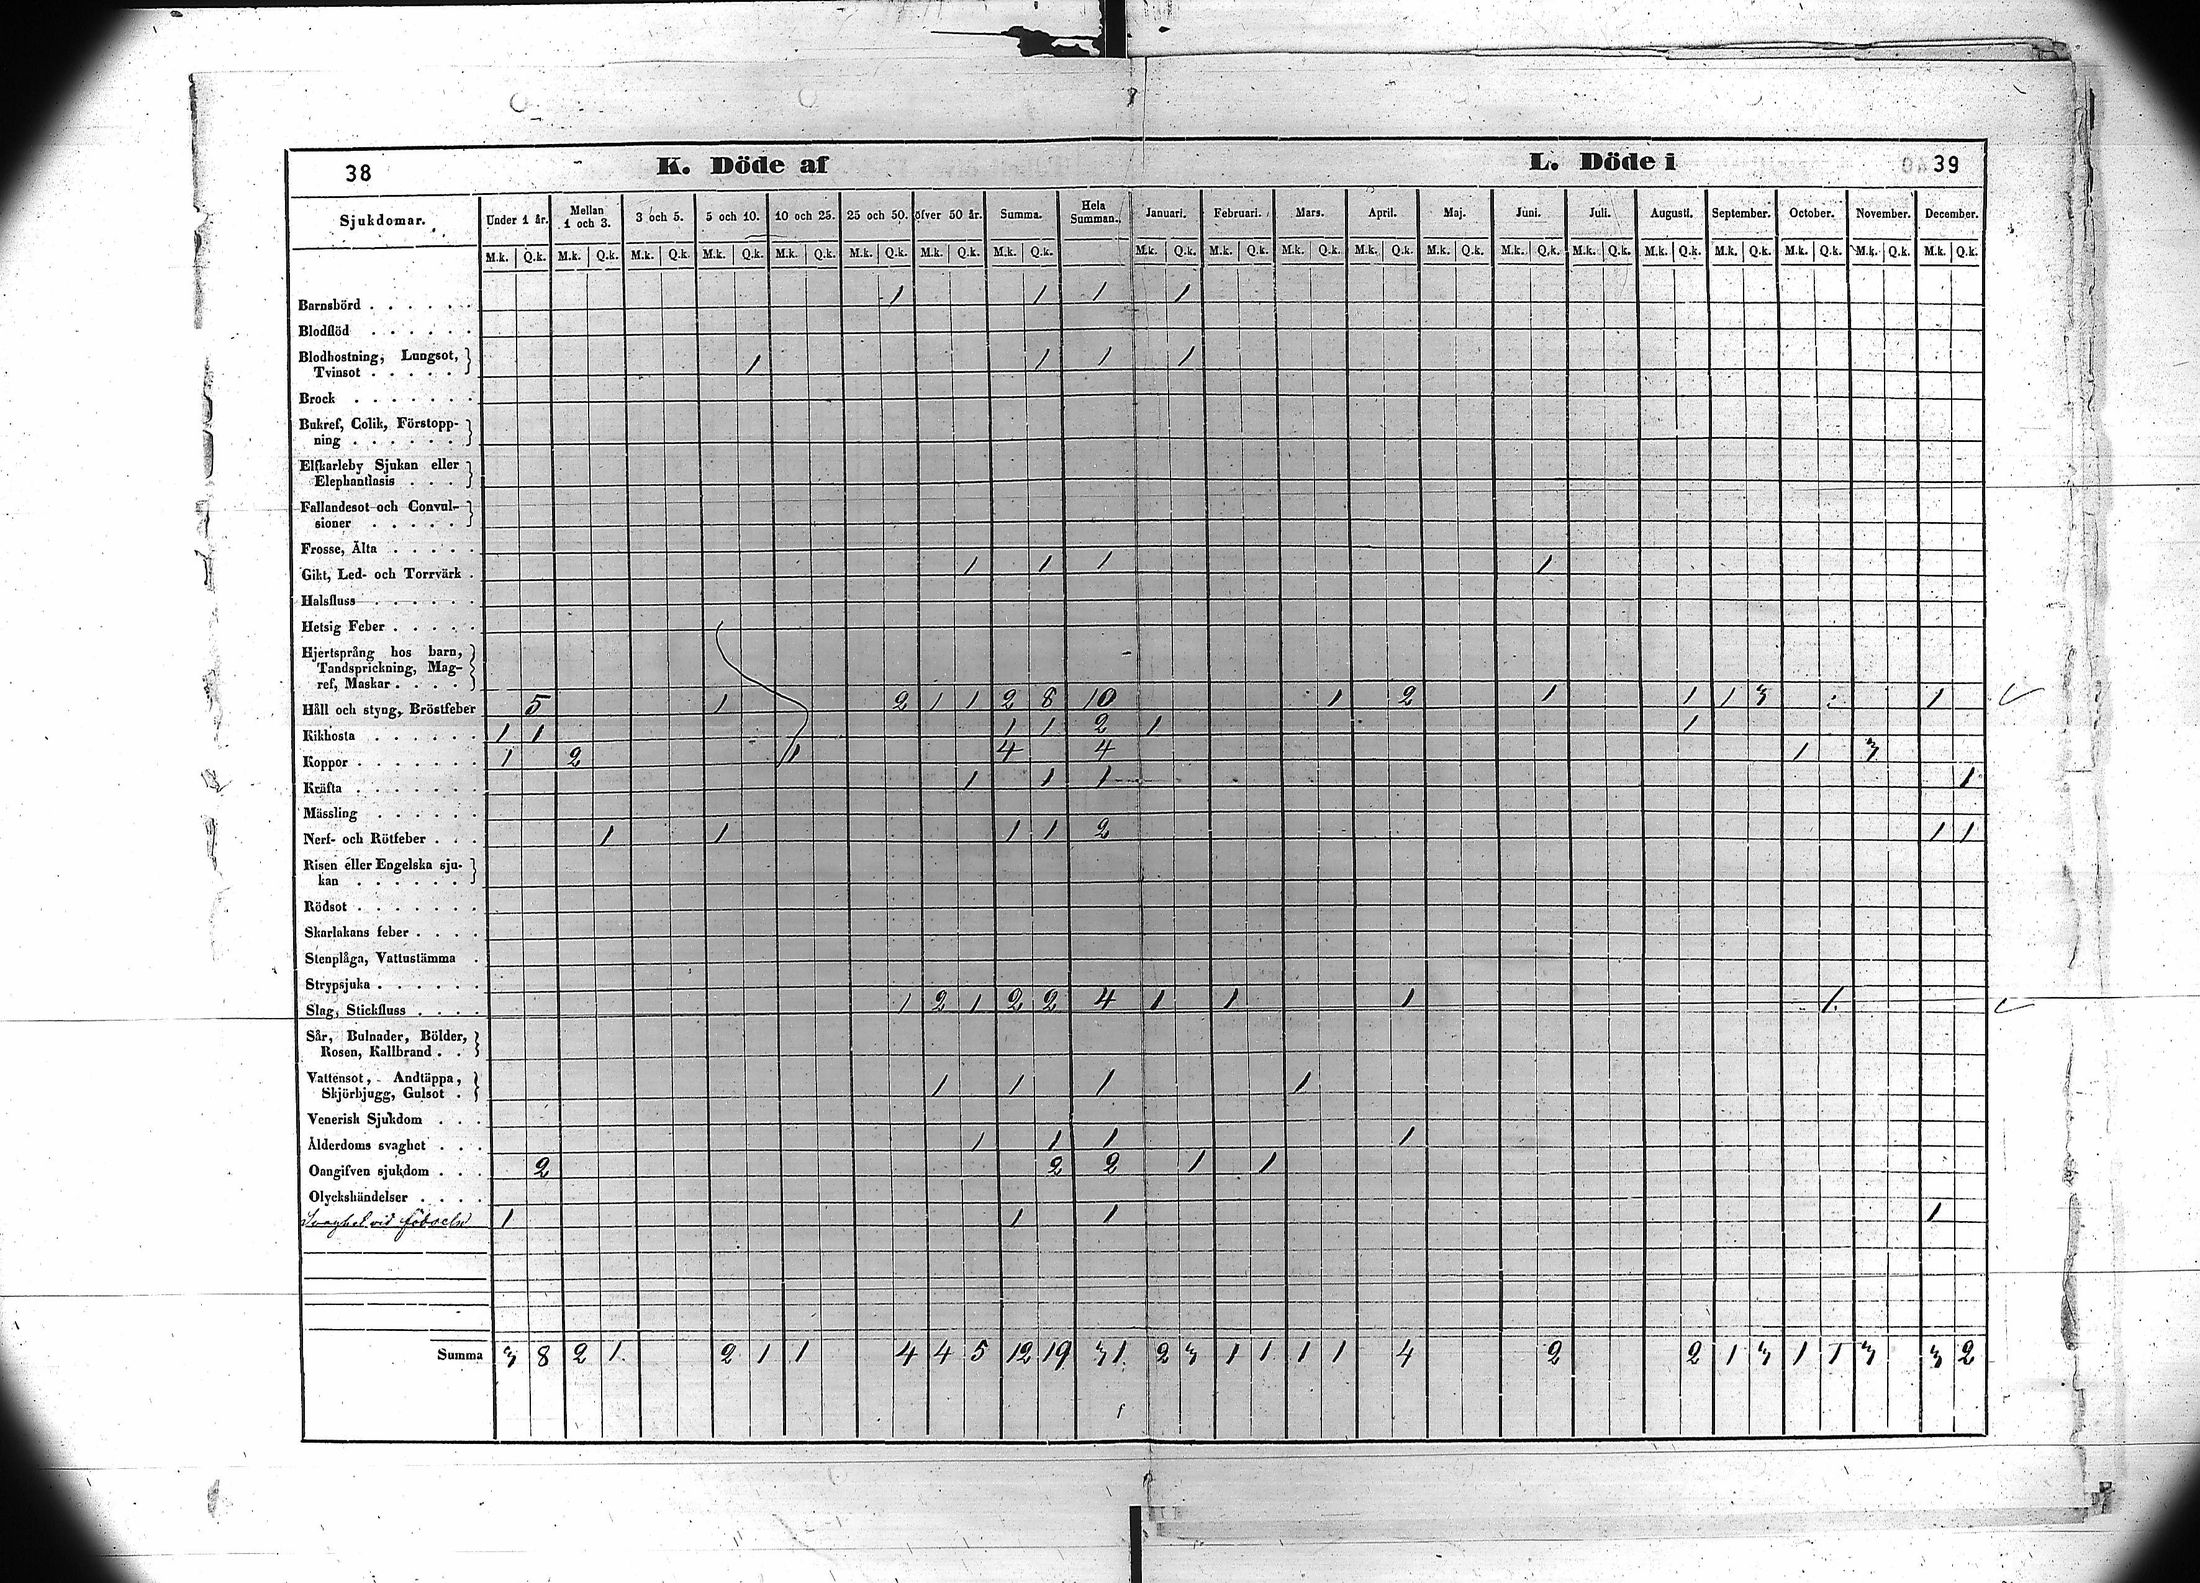 38 K. Döde af L. Döde i 39
Sjukdomar. Under 1 år. Mellan 1 och 3. 3 och 5. 5 och 10. 10 och 25. 25 och 50. öfver 50 år. Summa. Hela Summan. Januari. Februari. Mars. April. Maj. Juni. Juli. Augusti. September. October. November. December.
M.k. Q.k. M.k. Q.k. M.k. Q.k. M.k. Q.k. M.k. Q.k. M.k. Q.k. M.k. Q.k. M.k. Q.k. M.k. Q.k. M.k. Q.k. M.k. Q.k. M.k. Q.k. M.k. Q.k. M.k. Q.k. M.k. Q.k. M.k. Q.k. M.k. Q.k. M.k. Q.k. M.k. Q.k. M.k. Q.k.
Barnsbörd . . . . . . 1 1 1 1
Blodflöd . . . . . .
Blodhostning, Lungsot,
Tvinsot . . . . . 1 1 1 1
Brock . . . . . . .
Bukref, Colik, Förstopp-
ning . . . . . .
Elfkarleby Sjukan eller
Elephantiasis . . .
Fallandesot och Convul-
sioner . . . . .
Frosse, Älta . . . . .
Gikt, Led- och Torrvärk . 1 1 1 1
Halsfluss . . . . . .
Hetsig Feber . . . . .
Hjertsprång hos barn,
Tandsprickning, Mag-
ref, Maskar . . . .
Håll och styng, Bröstfeber 5 1 2 1 1 2 8 10 1 2 1 1 1 3 1
Kikhosta . . . . . . 1 1 1 1 2 1 1
Koppor . . . . . . . 1 2 1 4 4 1 3
Kräfta . . . . . . . 1 1 1 1
Mässling . . . . . .
Nerf- och Rötfeber . . . 1 1 1 1 2 1 1
Risen eller Engelska sju-
kan . . . . . .
Rödsot . . . . . . .
Skarlakans feber . . . .
Stenplåga, Vattustämma .
Strypsjuka . . . . . .
Slag, Stickfluss . . . . 1 2 1 2 2 4 1 1 1 1
Sår, Bulnader, Bölder,
Rosen, Kallbrand . .
Vattensot, Andtäppa,
Skjörbjugg, Gulsot . 1 1 1 1
Venerisk Sjukdom . . .
Ålderdoms svaghet . . . 1 1 1 1
Oangifven sjukdom . . . 2 2 2 1 1
Olyckshändelser . . . .
Svaghet vid födseln 1 1 1 1
Summa 3 8 2 1 2 1 1 4 4 5 12 19 31 2 3 1 1 1 1 4 2 2 1 3 1 1 3 3 2